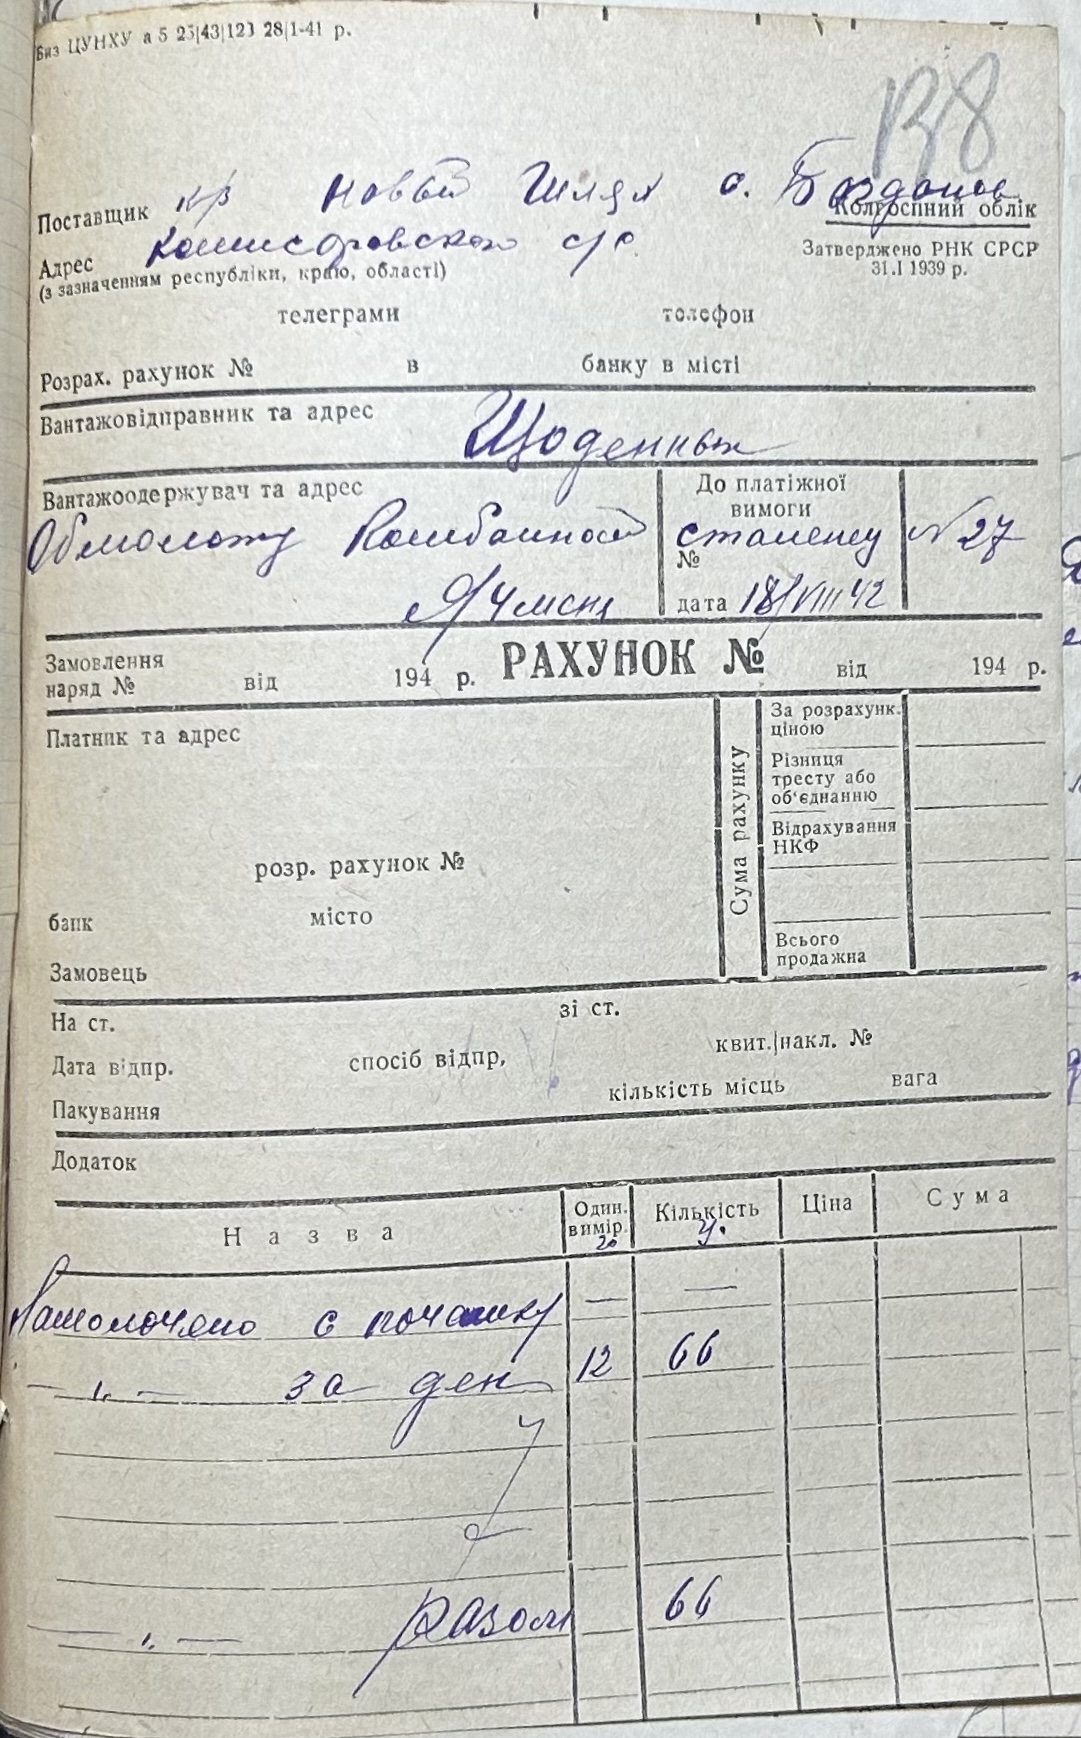 Биз ЦУНХУ а 5 25|43|123 28|1-41 р.
138
Поставщик к/з Новый Шлях с. Богданов
Колгоспний облік
Адрес Комисаровского с/р.
(з зазначенням республіки, краю, області)
Затверджено РНК СРСР
31.I 1939 р.
телеграми телефон
Розрах. рахунок № в банку в місті
Вантажовідправник та адрес Щоденнык
Вантажоодержувач та адрес
До платіжної
вимоги
Обмолоту Комбайной
станему № 27
№
Ячменя
дата 18/VIII 42
Замовлення
наряд № від 194 р. РАХУНОК № від 194 р.
Платник та адрес
Сума рахунку
За розрахунк.
ціною
Різниця
тресту або
об'єднанню
Відрахування
НКФ
розр. рахунок №
банк місто
Всього
продажна
Замовець
На ст. зі ст.
Дата відпр. спосіб відпр, квит.|накл. №
Пакування кількість місць вага
Додаток
Назва Один. вимір. Кількість Ціна Сума
га ц.
Намолочено с початку — —
—„— за ден 12 66
—„— разом 66